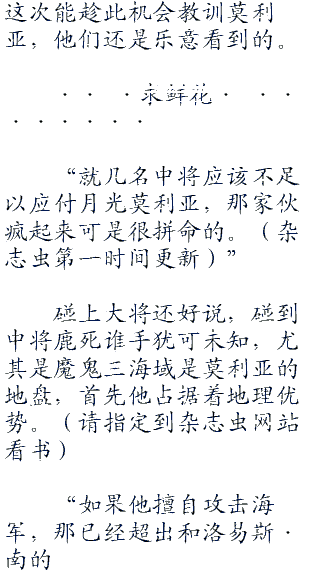 这次能趁此机会教训莫利
亚，他们还是乐意看到的。
· · ·求鲜花· · ·
· · · · · ·
“就几名中将应该不足
以应付月光莫利亚，那家伙
疯起来可是很拼命的。（杂
志虫第一时间更新）”
碰上大将还好说，碰到
中将鹿死谁手犹可未知，尤
其是魔鬼三海域是莫利亚的
地盘，首先他占据着地理优
势。（请指定到杂志虫网站
看书）
“如果他擅自攻击海
军，那已经超出和洛易斯·
南的